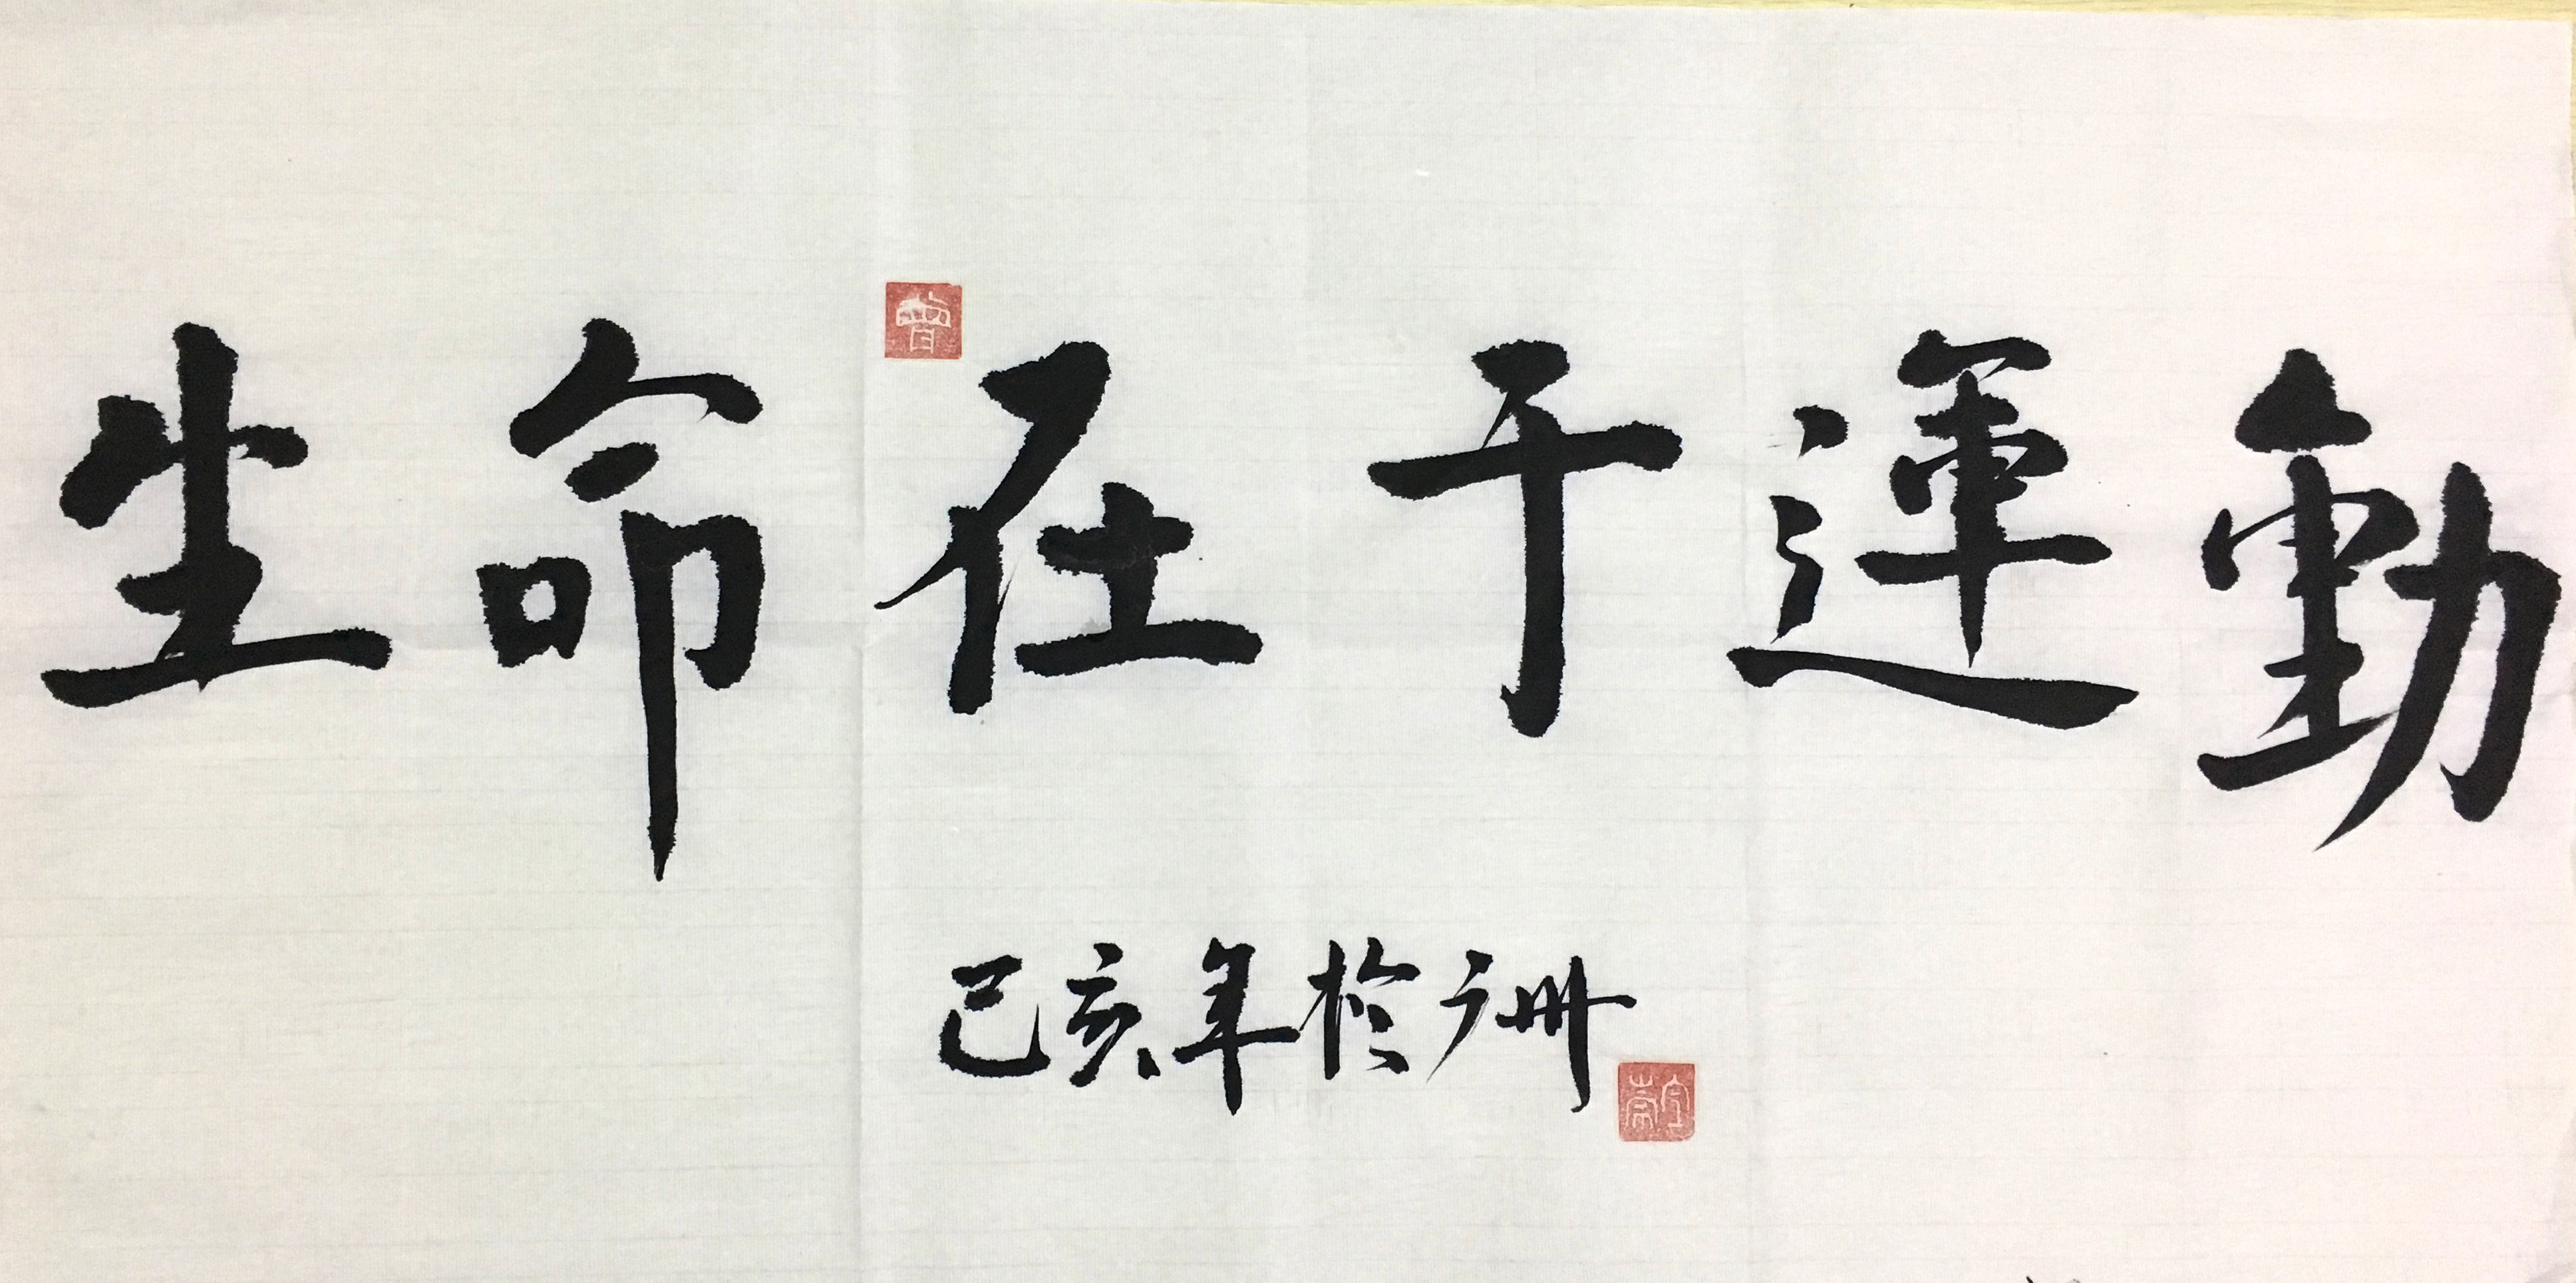 曾
生命在于運動
己亥年於广州